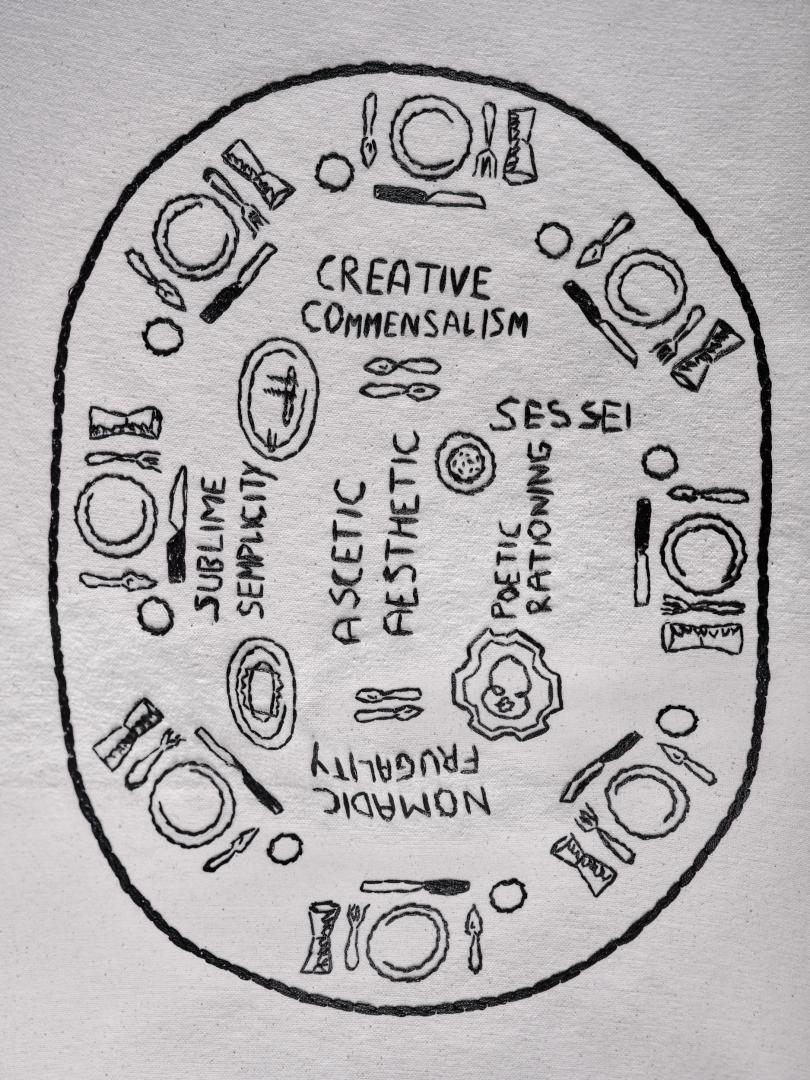 CREATIVE
COMMENSALISM
SESSEI
SUBLIME
SEMPLICITY
ASCETIC
AESTHETIC
POETIC
RATIONING
NOMADIC
FRUGALITY